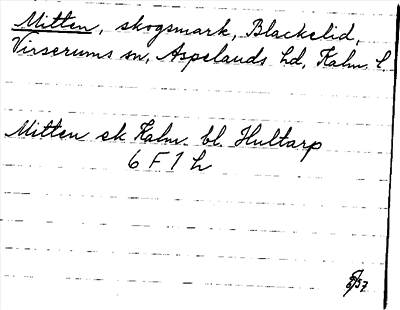 Mitten, skogsmark, Blackelid,
Virserums sn, Aspelands hd, Kalm. l.
Mitten ek Kalm. bl. Hultarp
6 F 1 h